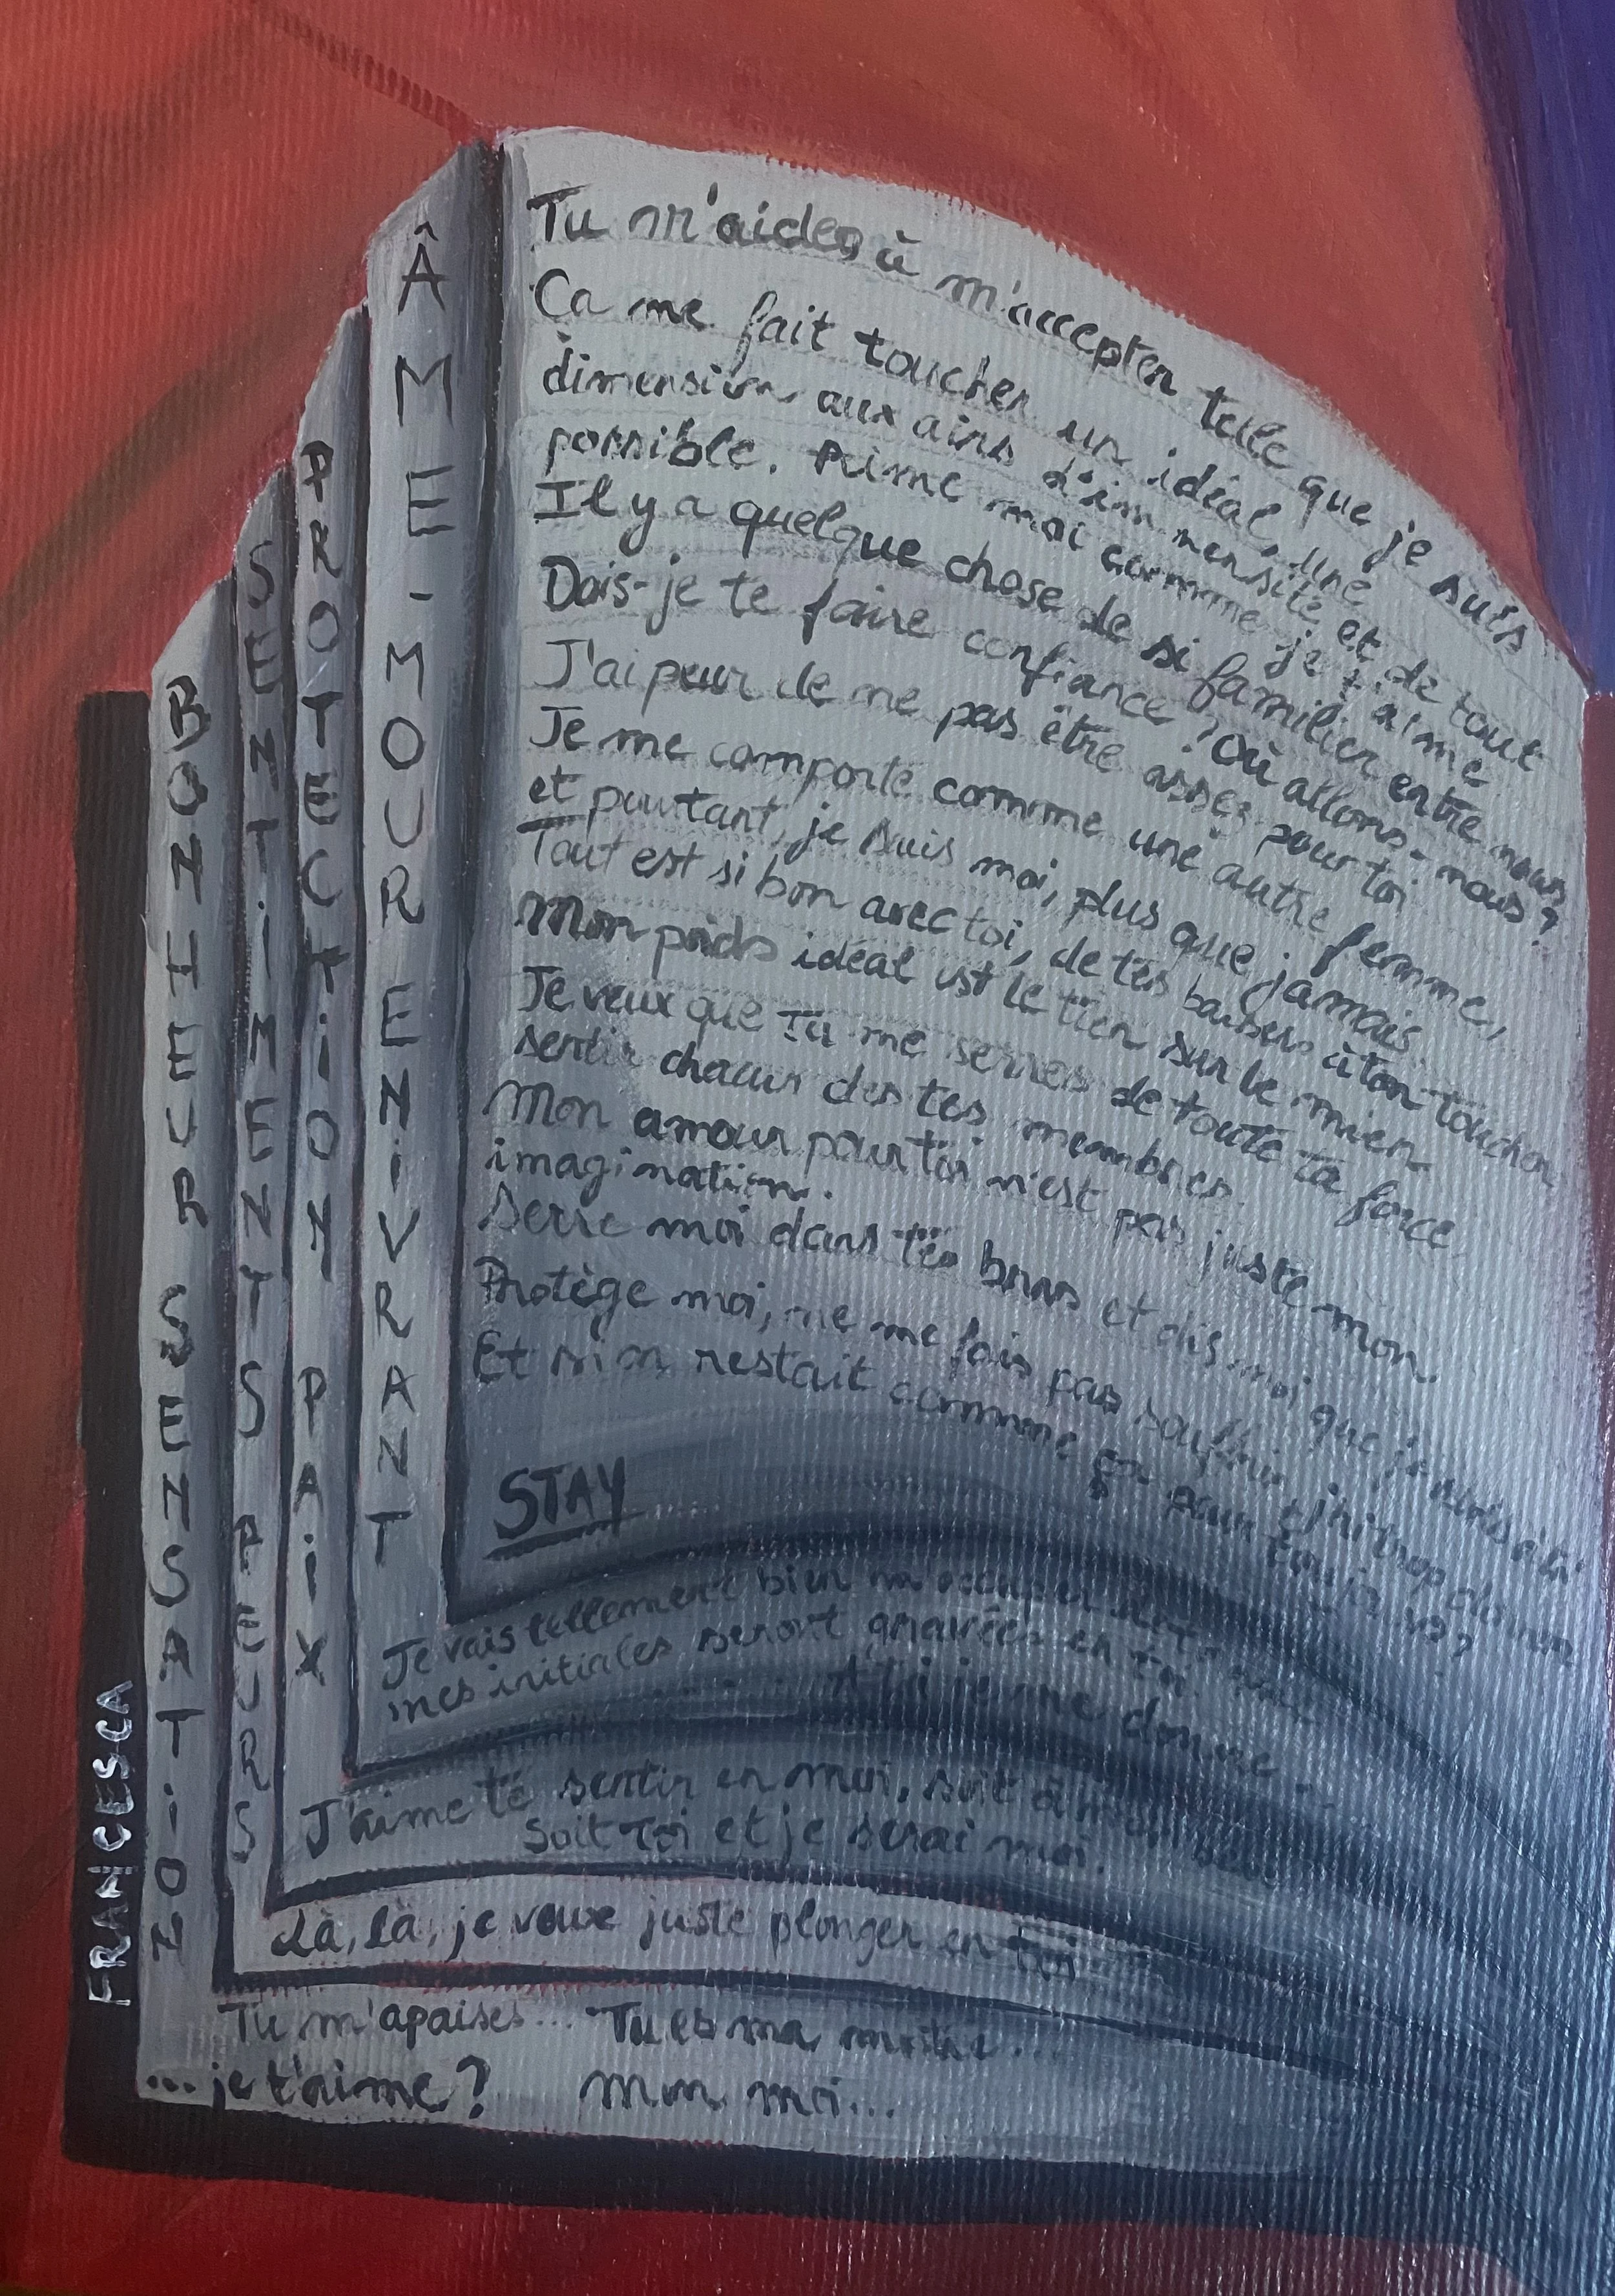 Tu m'aides à m'accepter telle que je suis
Ca me fait toucher un idéal, une
dimension aux airs d'immensité et de tout
possible. Aime moi comme je t'aime
Il y a quelque chose de si familier entre nous
Dois-je te faire confiance ? Où allons-nous ?
J'ai peur de ne pas être assez pour toi
Je me comporte comme une autre femme,
et pourtant, je suis moi, plus que jamais.
Tout est si bon avec toi, de tes baisers à ton toucher
Mon poids idéal est le tien sur le mien
Je veux que tu me serres de toute ta force
sentir chacun des tes membres.
Mon amour pour toi n'est pas juste mon
imagination.
Serre moi dans tes bras et dis-moi que je suis à toi
Protège moi, ne me fais pas souffrir, j'ai trop
Et si on restait comme ça pour toujours ?
STAY
Je vais tellement bien m'occuper de toi
mes initiales seront gravées en toi.
A toi je me donne...
J'aime te sentir en moi, soit à moi
Soit toi et je serai moi.
Là, là, je veux juste plonger en toi
Tu m'apaises... Tu es ma moitié...
... je t'aime ? Mon moi...
ÂME-MOUR ENIVRANT
PROTECTION PAIX
SENTIMENTS PEURS
BONHEUR SENSATION
FRANCESCA